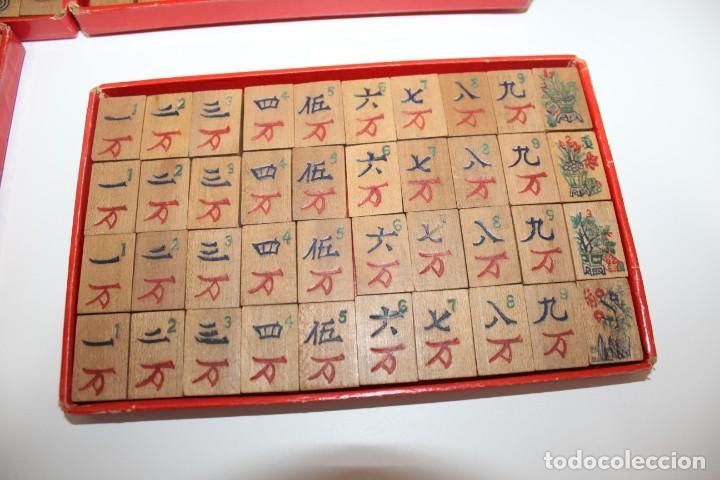 一1 二2 三3 四4 伍5 六6 七7 八8 九9
万 万 万 万 万 万 万 万 万
一1 二2 三3 四4 伍5 六6 七7 八8 九9
万 万 万 万 万 万 万 万 万
一1 二2 三3 四4 伍5 六6 七7 八8 九9
万 万 万 万 万 万 万 万 万
一1 二2 三3 四4 伍5 六6 七7 八8 九9
万 万 万 万 万 万 万 万 万
todocoleccion